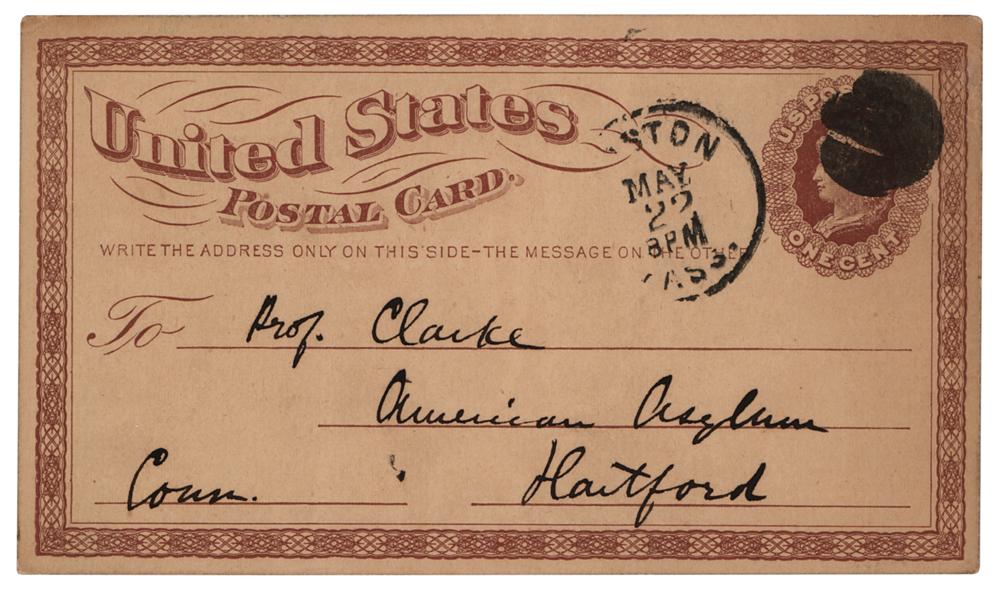 United States
POSTAL CARD.
WRITE THE ADDRESS ONLY ON THIS SIDE-THE MESSAGE ON THE OTHER
STON
MAY
22
8PM
ASS.
U.S. POS
ONE CENT
To Prof. Clarke
American Asylum
Hartford
Conn.